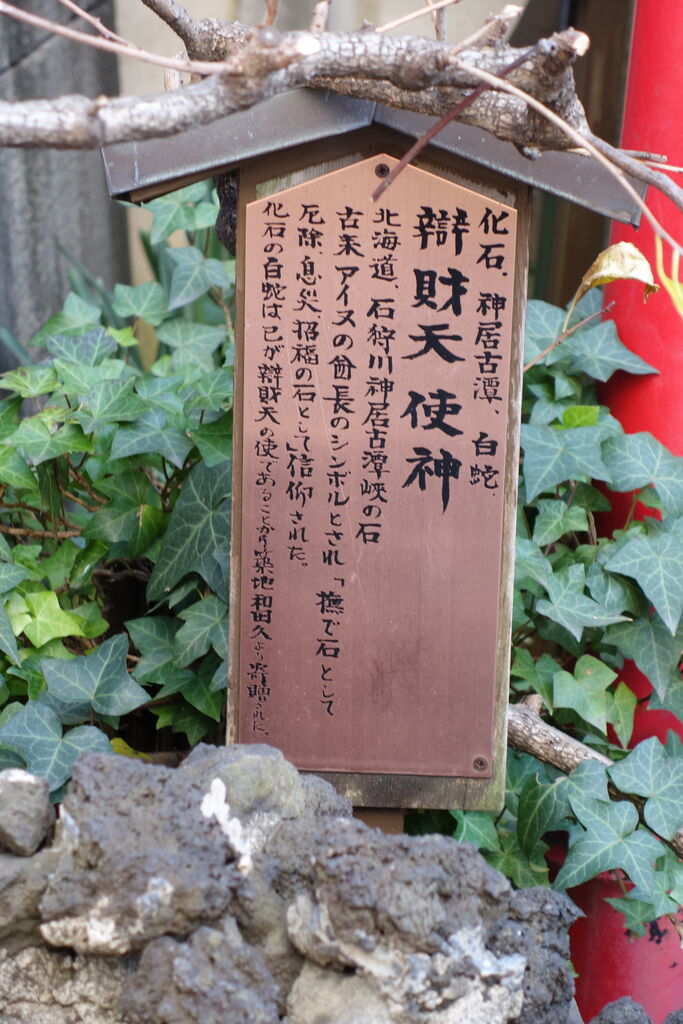 化石、神居古潭、白蛇、
辯財天使神
北海道、石狩川神居古潭峡の石
古来アイヌの酋長のシンボルとされ「撫で石として
厄除、息災招福の石として」信仰された。
化石の白蛇は己が辯財天の使であることから築地和田久より寄贈された、